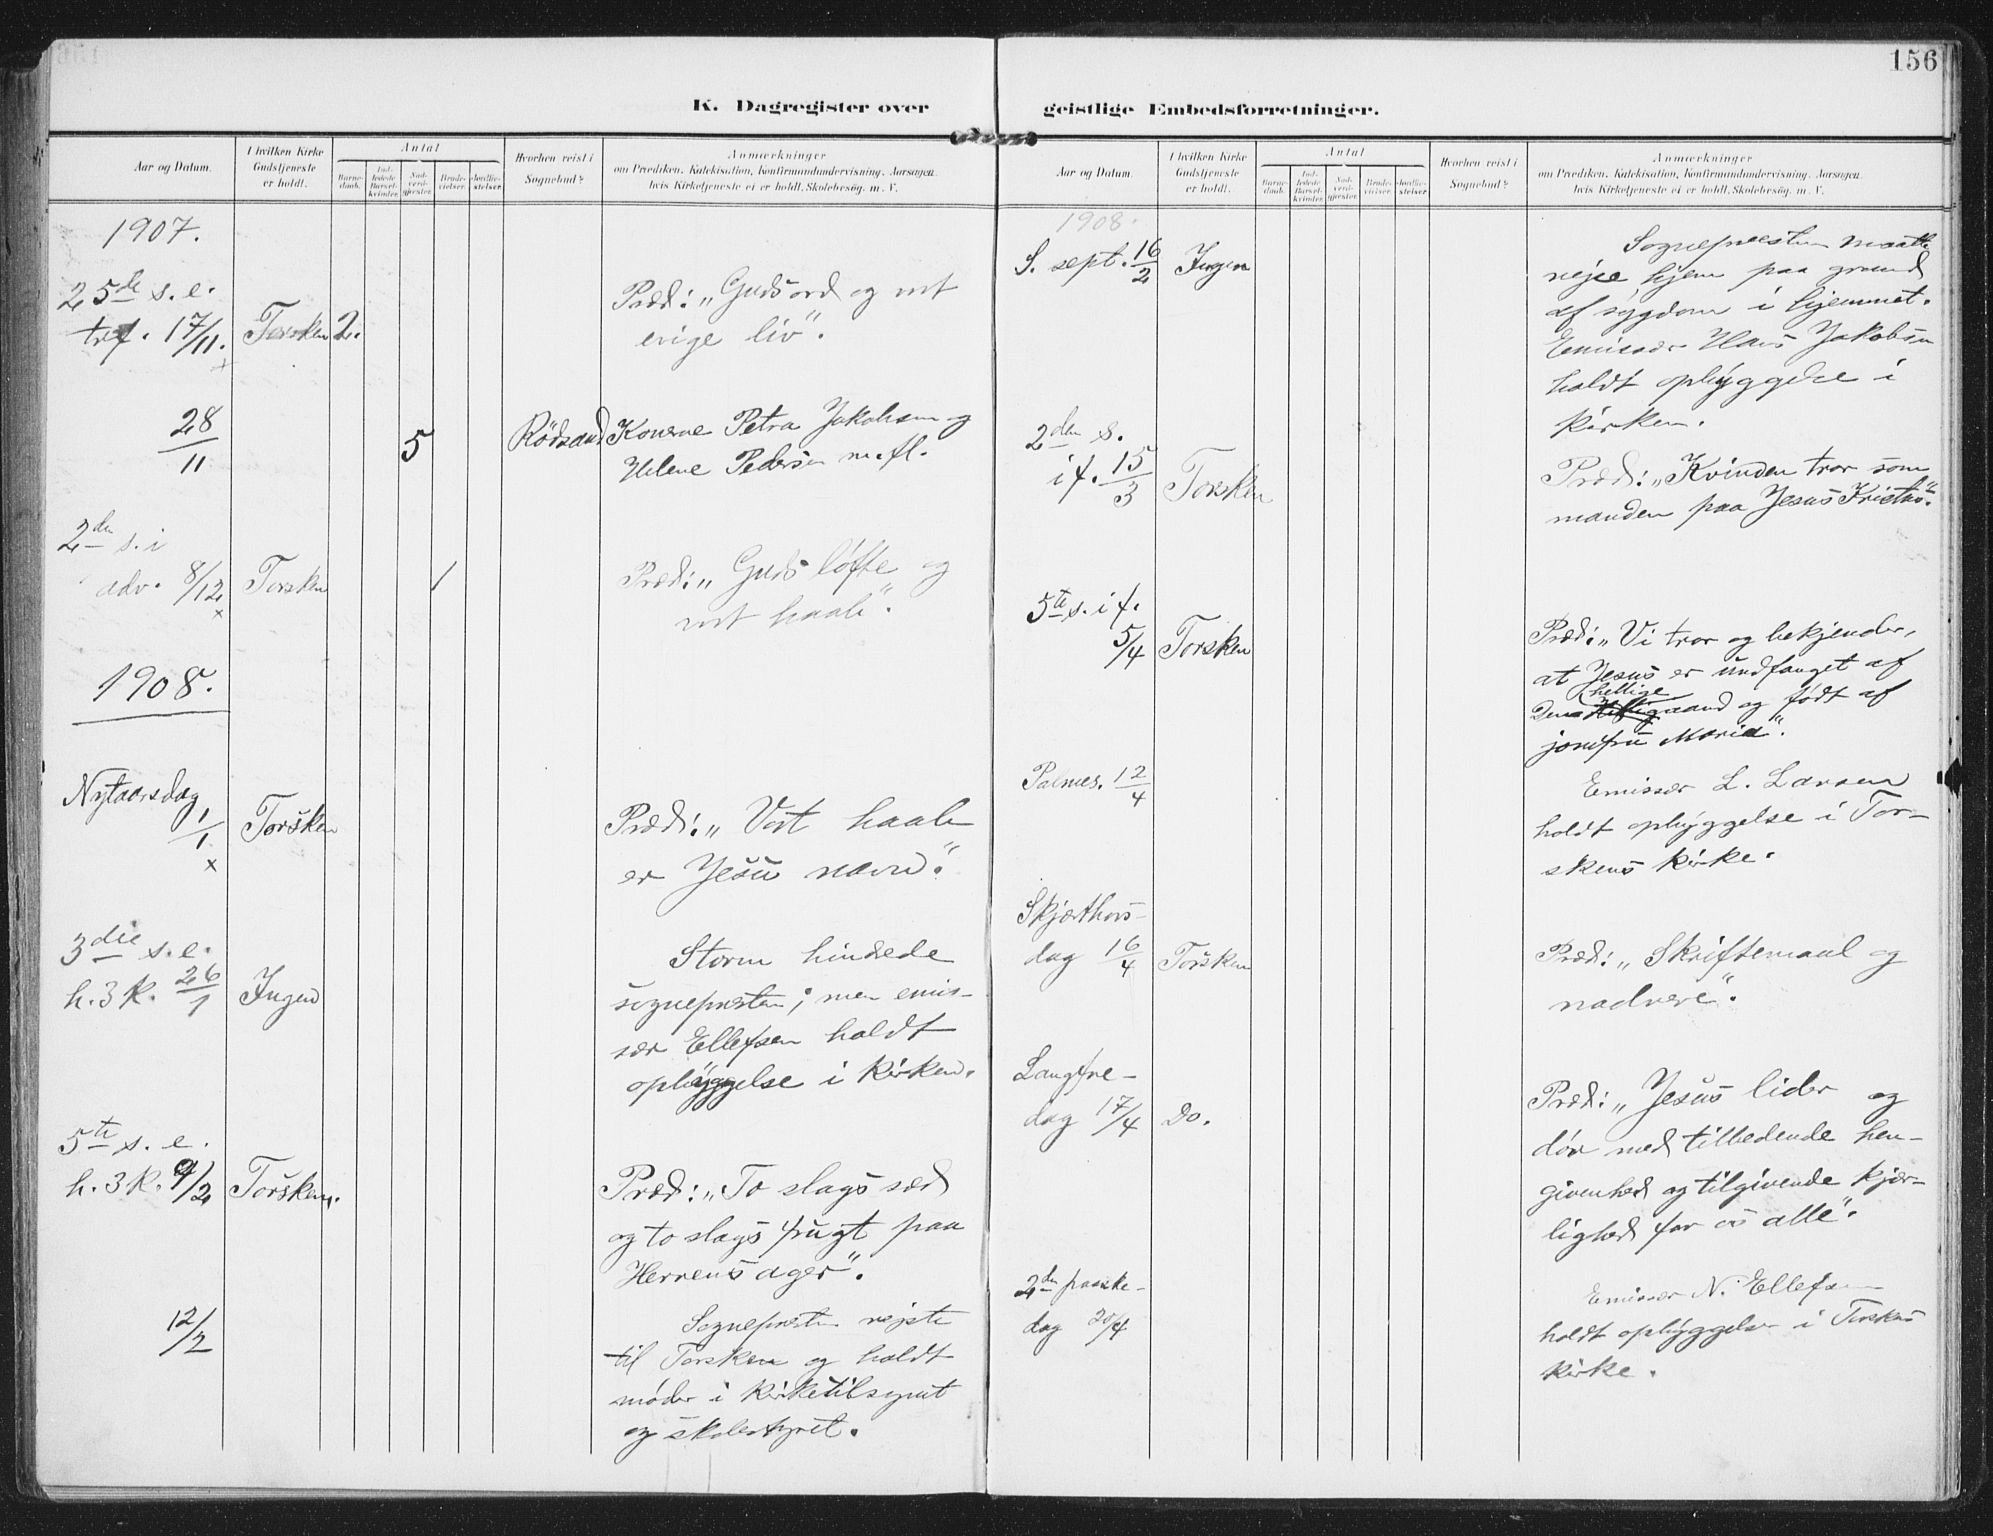 156
K. Dagregister over geistlige Embedsforretninger.
Aar og Datum.
I hvilken Kirke Gudstjeneste er holdt.
Antal
Barnedaab.
Indledede Barselkvinder.
Nadverdgjester.
Brudevielser.
Jordfæstelser.
Hvorhen reist i Sognebud?
Anmærkninger
om Prædiken, Katekisation, Konfirmandundervisning, Aarsagen,
hvis Kirketjeneste ei er holdt, Skolebesøg, m. V.
1907.
25de s. e.
tref. 17/11. Torsken 2.
x
Præd: „Guds ord og vort
evige liv“.
28/11 5 Rödsand Konerne Petra Jakobsen og
Helene Pedersen m. fl.
2den s. i
adv. 8/12 Torsken 1
x
Præd: „Guds løfte og
vort haab“.
1908.
Nytaarsdag
1/1 Torsken
x
Præd: „Vort haab
er Jesu navn“.
3die s. e.
h. 3 k. 26/1 Ingen
Storm hindrede
sognepresten; men emis-
sær Ellefsen holdt
opbyggelse i kirken.
5te s. e.
h. 3 k. 9/2 Torsken.
Præd: „To slags sæd
og to slags frugt paa
Herrens ager“.
12/2
Sognepresten rejste
til Torsken og holdt
møder i kirketilsynet
og skolestyret.
Aar og Datum.
I hvilken Kirke Gudstjeneste er holdt.
Antal
Barnedaab.
Indledede Barselkvinder.
Nadverdgjester.
Brudevielser.
Jordfæstelser.
Hvorhen reist i Sognebud?
Anmærkninger
om Prædiken, Katekisation, Konfirmandundervisning, Aarsagen,
hvis Kirketjeneste ei er holdt, Skolebesøg, m. V.
1908.
S. sept. 16/2 Ingen
Sognepresten maatte
rejse hjem paa grund
af sygdom i hjemmet.
Emissær Hans Jakobsen
holdt opbyggelse i
kirken.
2den s.
i f. 15/3 Torsken
Præd: „Kvinden tror som
manden paa Jesus Kristus“.
5te s. i f.
5/4 Torsken
Præd: „Vi tror og bekjender,
at Jesus er undfanget af
hellige
Den Helligaand og født af
jomfru Maria“.
Palmes. 12/4
Emissær L. Larsen
holdt opbyggelse i Tor-
skens kirke.
Skjærthors-
dag 16/4 Torsken
Præd: „Skriftemaal og
nadvere“.
Langfre-
dag 17/4 Do.
Præd: „Jesus lider og
dør med tilbedende hen-
givenhed og tilgivende kjær-
lighed for os alle“.
2den paaske-
dag 20/4
Emissær N. Ellefsen
holdt opbyggelse i Torskens
kirke.